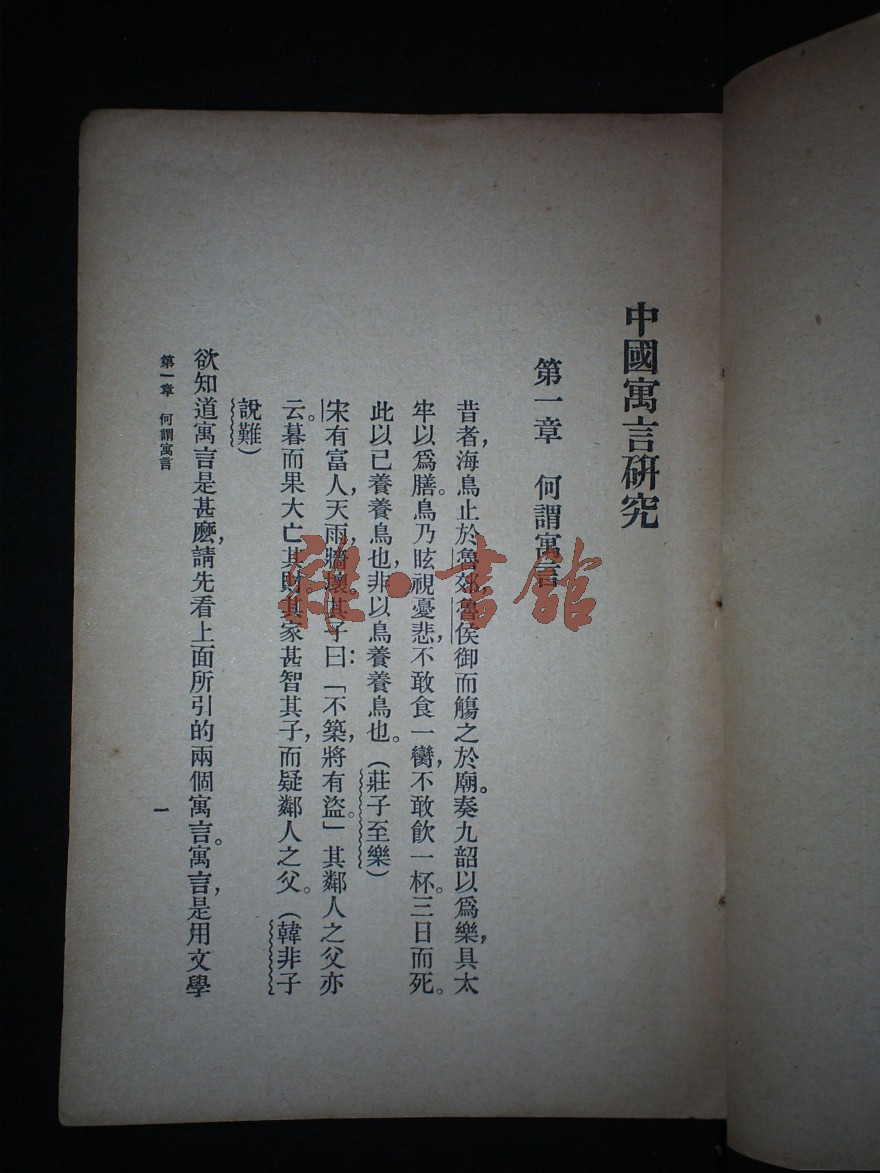 中國寓言研究
第一章　何謂寓言
昔者，海鳥止於魯郊，魯侯御而觴之於廟。奏九韶以爲樂，具太
牢以爲膳。鳥乃眩視憂悲，不敢食一臠，不敢飲一杯。三日而死。
此以己養養鳥也，非以鳥養養鳥也。（莊子至樂）
宋有富人，天雨，牆壞。其子曰：「不築，將有盜。」其鄰人之父亦
云。暮而果大亡其財，其家甚智其子，而疑鄰人之父。（韓非子
說難）
欲知道寓言是甚麽，請先看上面所引的兩個寓言。寓言是用文學，
第一章　何謂寓言
一
雜·書館